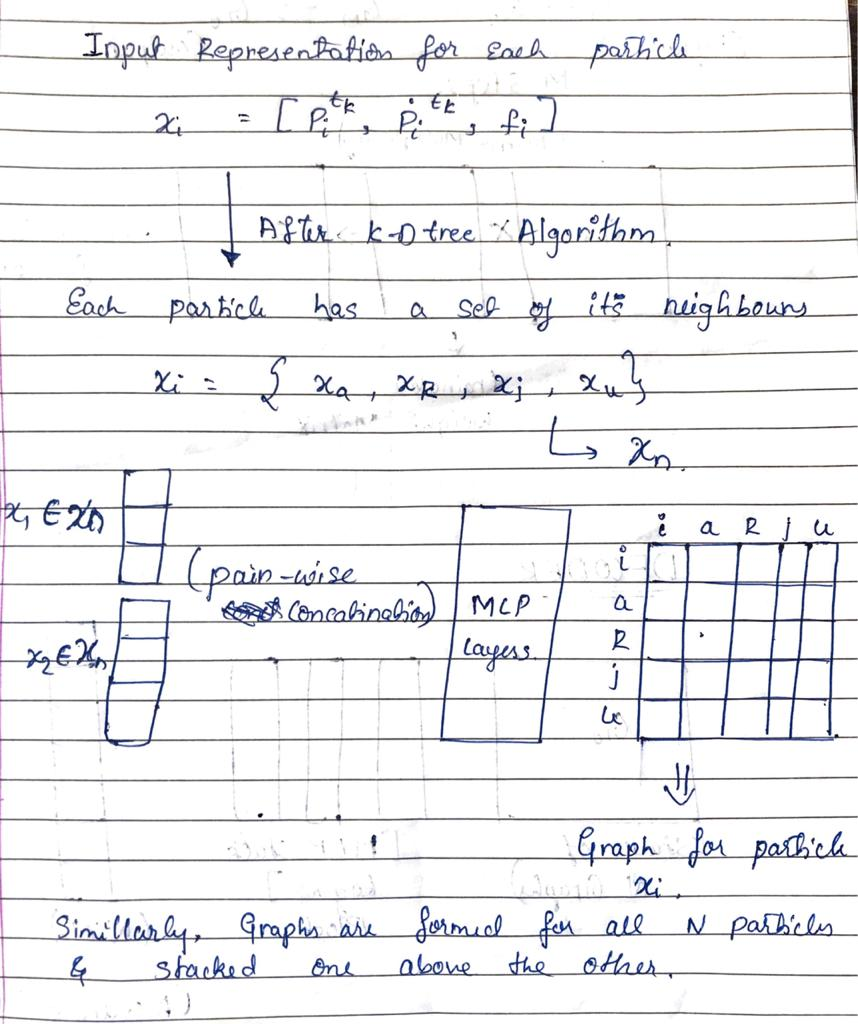 Input Representation for each particle
xi = [ Pi^tk, Ṗi^tk, fi ]
After k-D tree Algorithm.
Each particle has a set of its neighbours
xi = { xa, xk, xj, xu }
↳ xn.
x1 ∈ xn
(pair-wise
concatination)
x2 ∈ xn
MLP
layers.
i a k j u
i
a
k
j
u
⇓
Graph for particle
xi.
Simillarly, Graphs are formed for all N particles
& stacked one above the other.